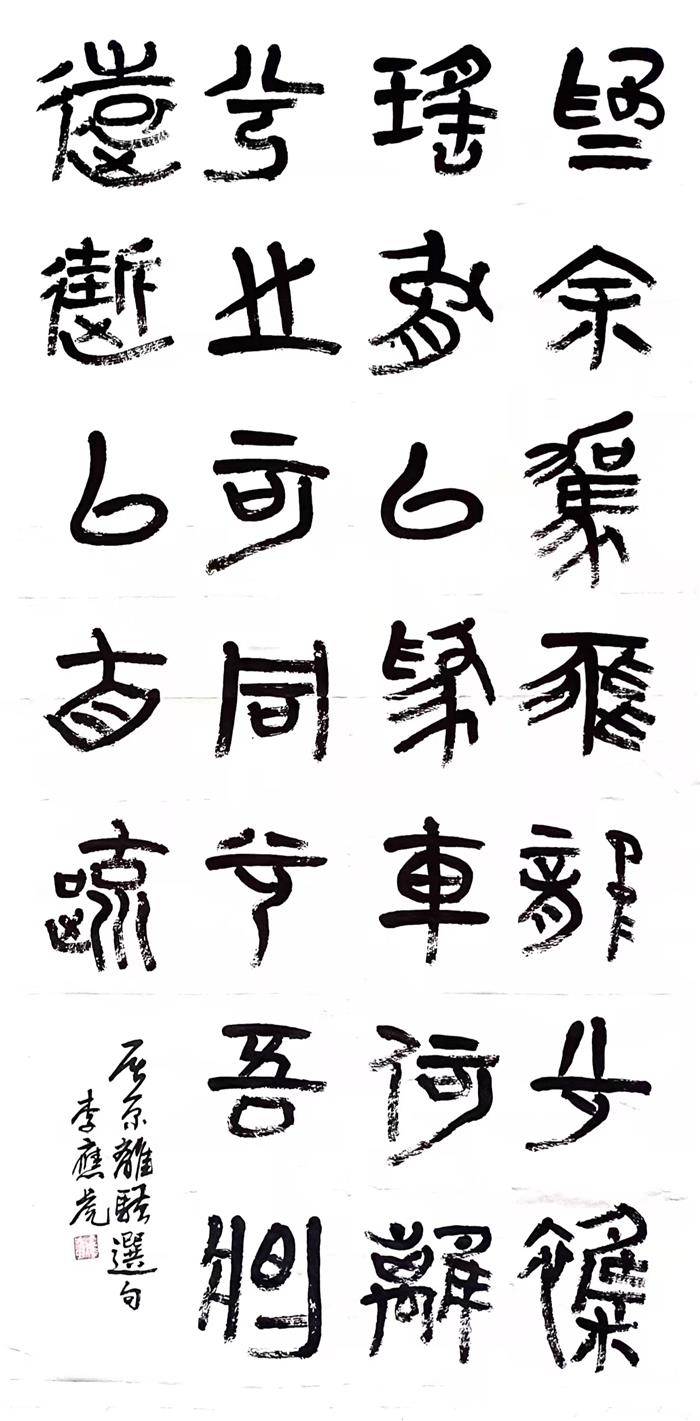 為余駕飛龍兮雜
瑤象以為車何離
兮之可同兮吾將
遠逝以自疏
屈原離騷選句
李應虎